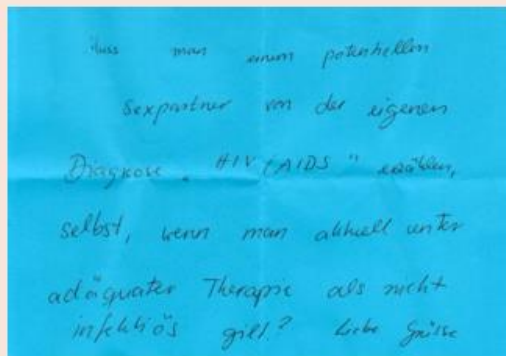 Muss man einem potentiellen
Sexpartner von der eigenen
Diagnose "HIV/AIDS" erzählen,
selbst, wenn man aktuell unter
adäquater Therapie als nicht
infektiös gilt? Liebe Grüsse